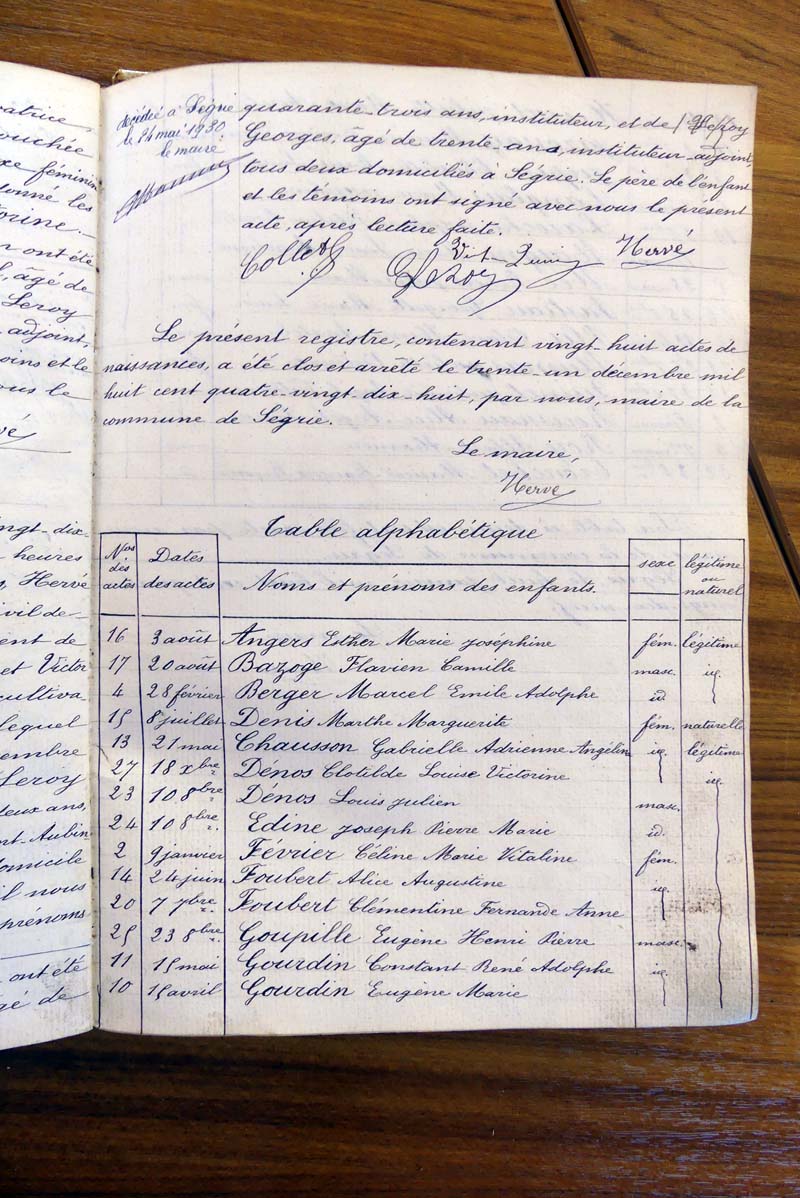 atrice,
ouchée
xe féminin
donné les
torine.
n ont été
l, âgé de
Leroy
adjoint,
oins et le
ous le
vé
ingt-dix-
heures
s, Hervé
ivil de
ent de
et Victor
cultiva-
lequel
embre
Leroy
deux ans,
nt-Aubin
domicile
il nous
prénoms
ont été
gé de
décédée à Ségrie
le 24 mai 1930
le maire
quarante-trois ans, instituteur, et de Leroy
Georges, âgé de trente-ans, instituteur-adjoint,
tous deux domiciliés à Ségrie. Le père de l'enfant
et les témoins ont signé avec nous le présent
acte, après lecture faite.
Collet Leroy Hervé
Le présent registre, contenant vingt-huit actes de
naissances, a été clos et arrêté le trente-un décembre mil
huit cent quatre-vingt-dix-huit, par nous, maire de la
commune de Ségrie.
Le maire,
Hervé
Table alphabétique
Nos des actes Dates des actes Noms et prénoms des enfants. sexe légitime ou naturel
16 3 août Angers Esther Marie Joséphine fém. légitime
17 20 août Bazoge Flavien Camille masc. id.
4 28 février Berger Marcel Emile Adolphe id.
15 8 juillet Denis Marthe Marguerite fém. naturelle
13 21 mai Chausson Gabrielle Adrienne Angélin id. légitime
27 18 xbre Dénos Clotilde Louise Victorine id.
23 10 8bre Dénos Louis Julien masc.
24 10 8bre Edine Joseph Pierre Marie id.
2 9 janvier Février Céline Marie Vitaline fém.
14 24 juin Foubert Alice Augustine id.
20 7 7bre Foubert Clémentine Fernande Anne
25 23 8bre Goupille Eugène Henri Pierre masc.
11 15 mai Gourdin Constant René Adolphe id.
10 15 avril Gourdin Eugène Marie